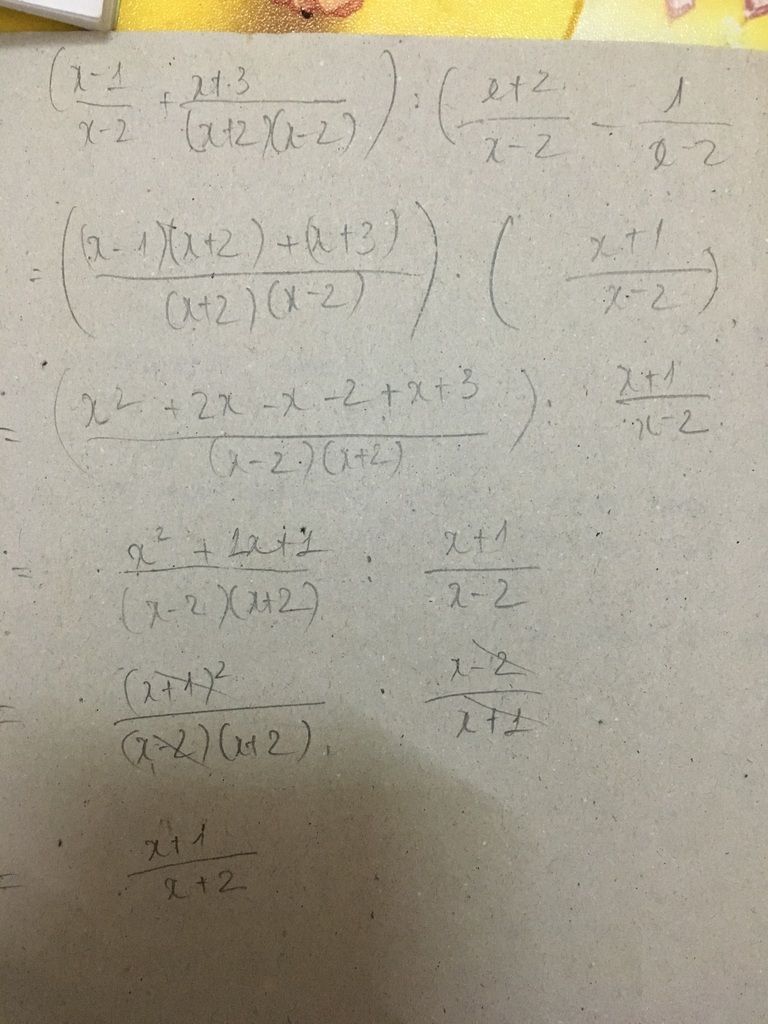 (x-1/x-2 + x+3/(x+2)(x-2)) : (x+2/x-2 - 1/x-2
= ((x-1)(x+2)+(x+3)/(x+2)(x-2)) : (x+1/x-2)
= (x² +2x -x -2 +x+3/(x-2)(x+2)) : x+1/x-2
= x² +2x+1/(x-2)(x+2) : x+1/x-2
= (x+1)²/(x-2)(x+2) . x-2/x+1
= x+1/x+2